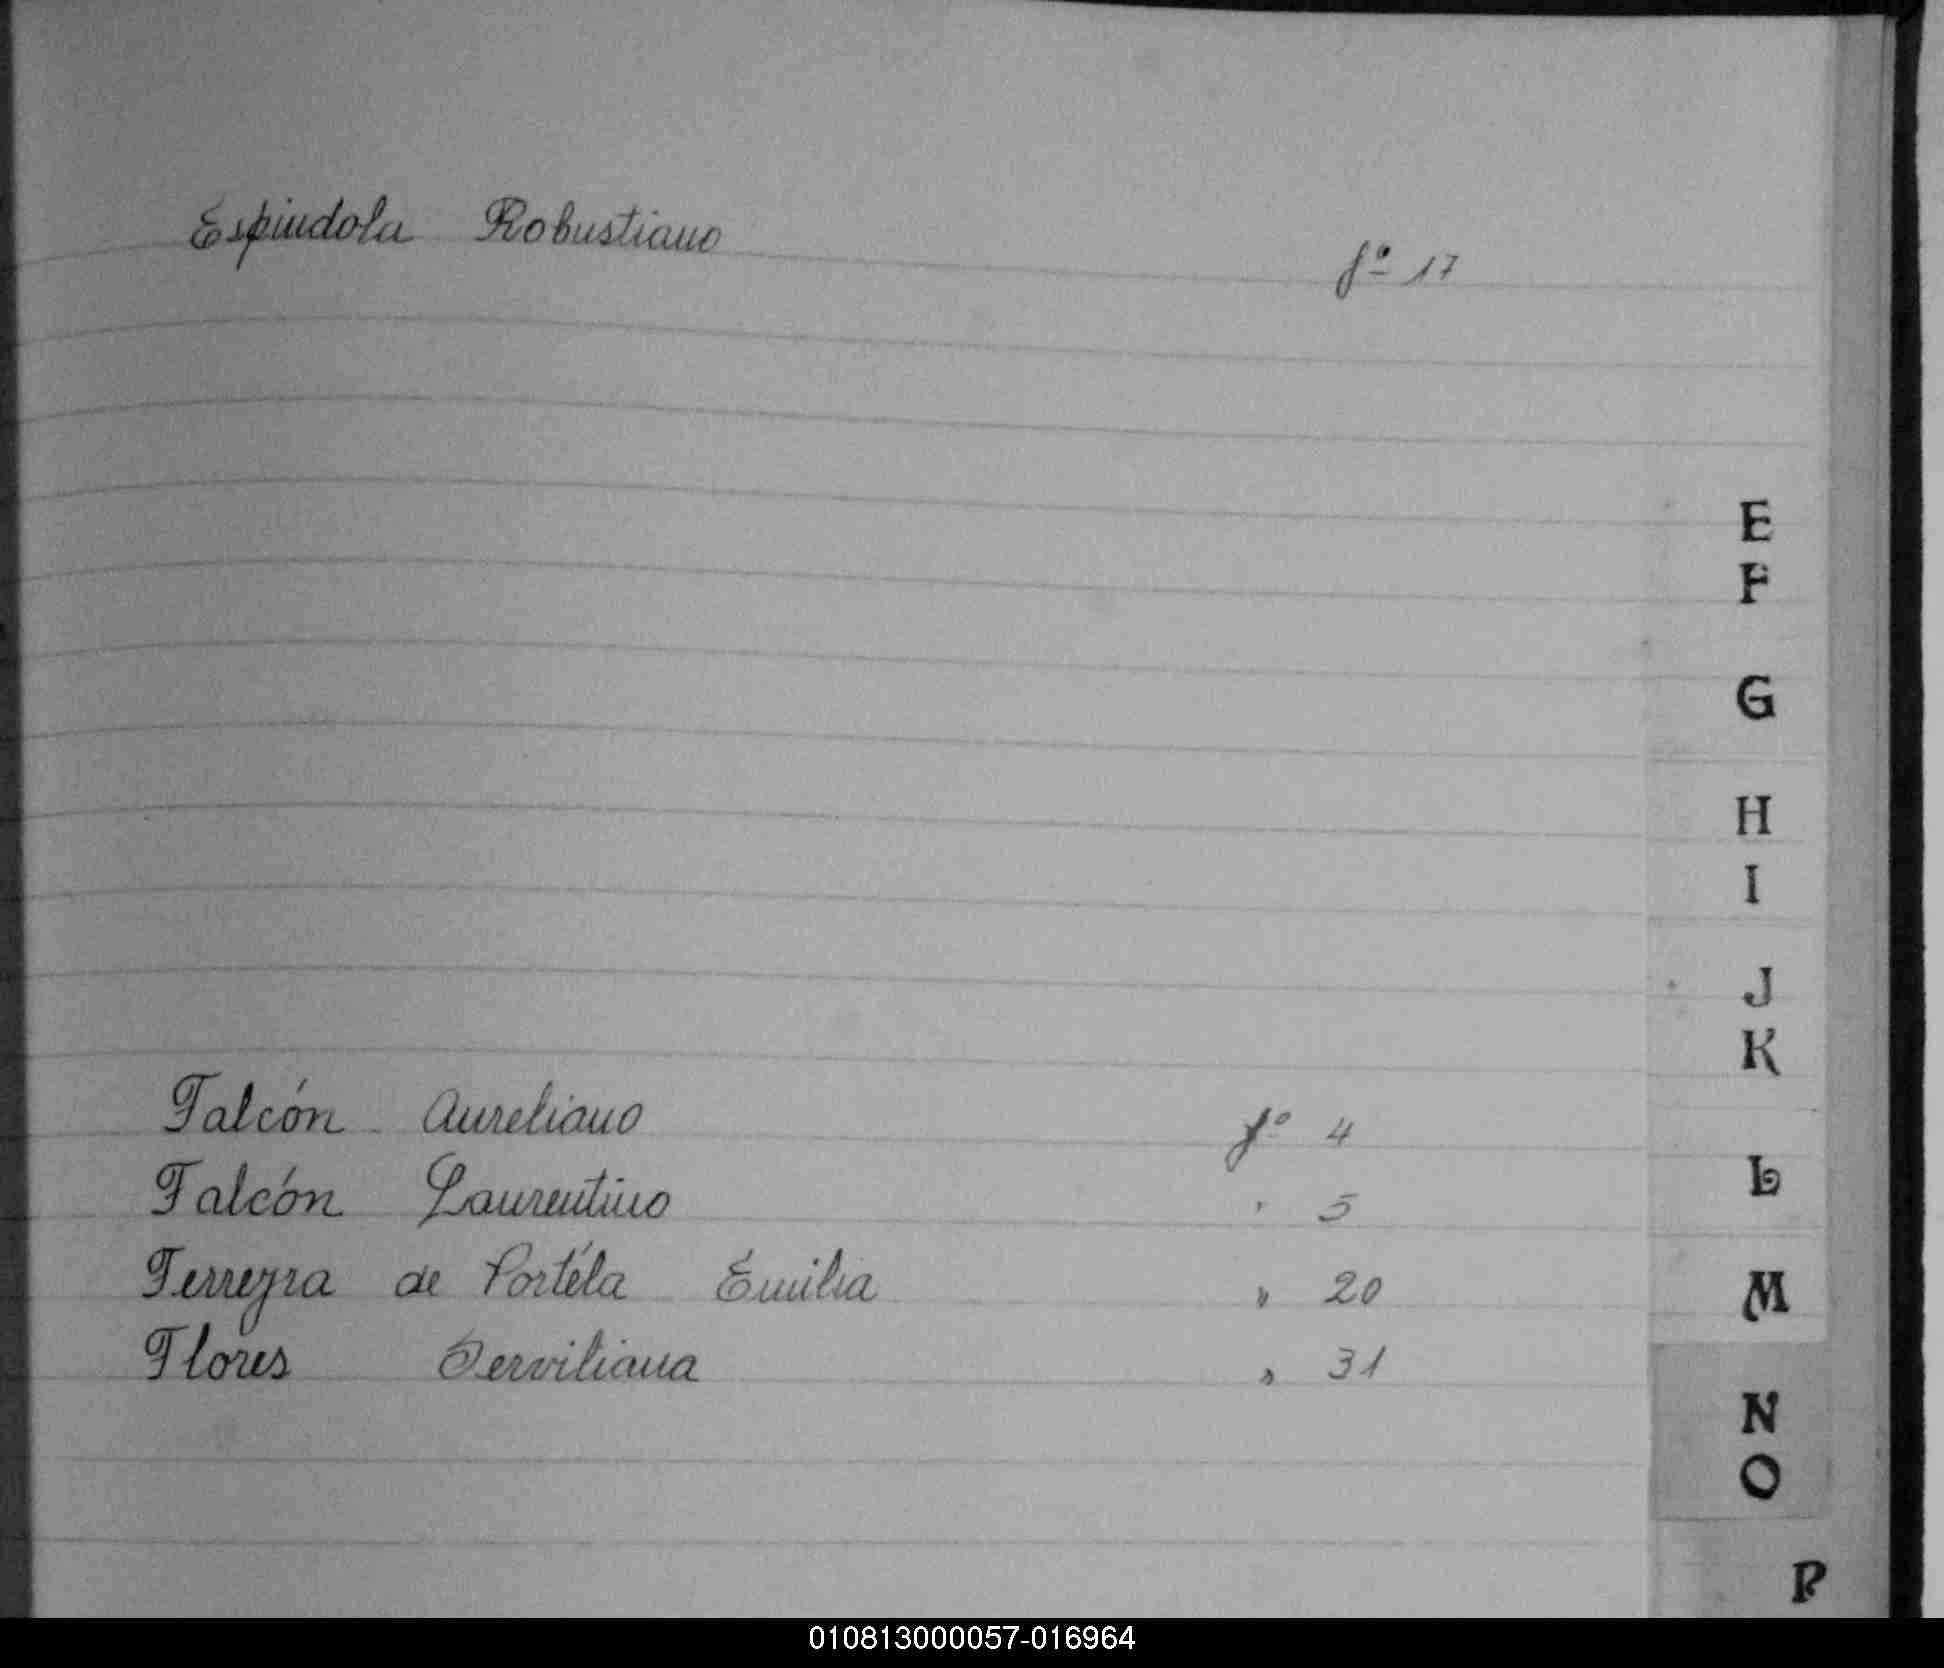 Espindola Robustiano fº 17
E
F
G
H
I
J
K
Falcón Aureliano fº 4
Falcón Laurentino " 5
L
Ferreyra de Portéla Emilia " 20
M
Flores Serviliana " 31
N
O
P
010813000057-016964